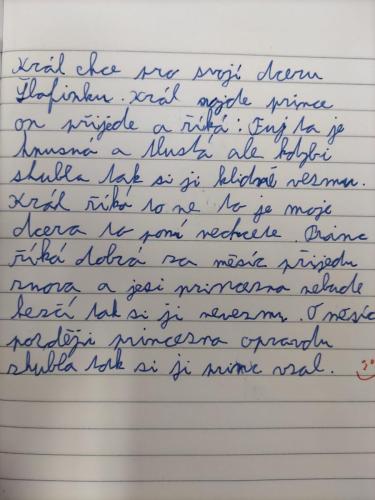 Král chce pro svojí dceru
Šlafinku. Král najde prince
on přijede a říká: Fuj ta je
hnusná a tlustá ale kdyby
zhubla tak si ji klidně vezmu.
Král říká to ne to je moje
dcera to poní nechcete. Princ
říká dobrá za měsíc přijedu
znova a jesi princezna nebude
hezčí tak si ji nevezmu. O měsíc
později princezna opravdu
zhubla tak si ji princ vzal.